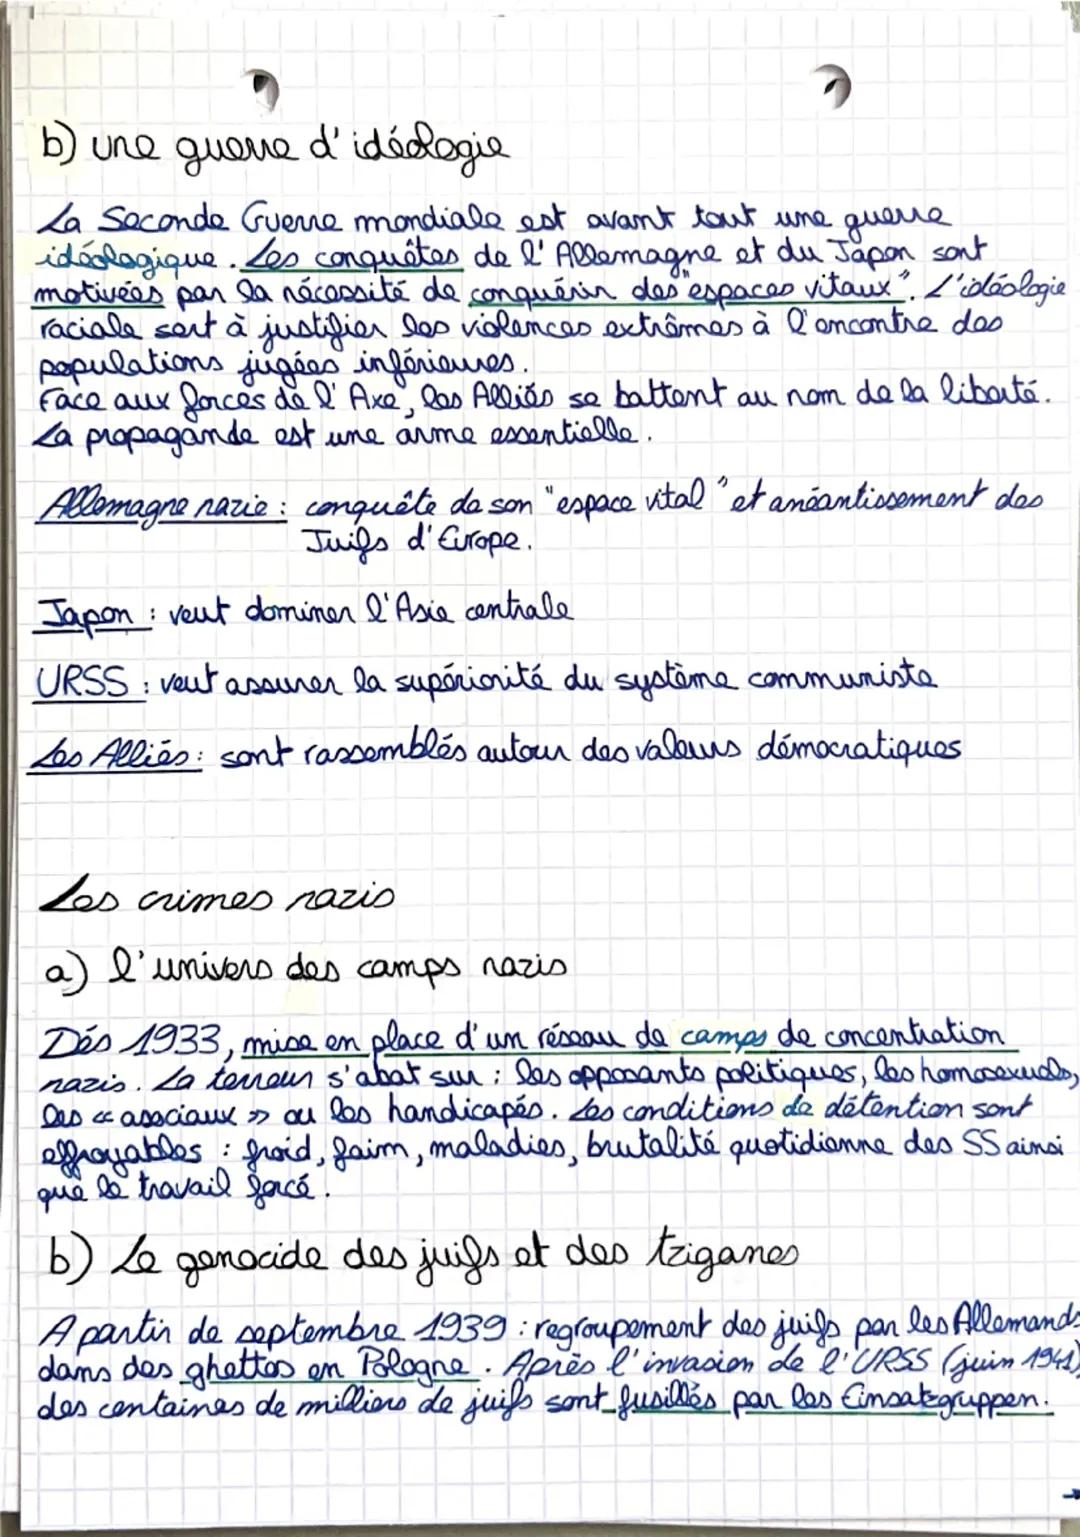 b) une guerre d'idéologie
La Seconde Guerre mondiale est avant tout une guerre
idéologique. Les conquêtes de l'Allemagne et du Japon sont
motivées par la nécessité de conquérir des "espaces vitaux". L'idéologie
raciale sert à justifier les violences extrêmes à l'encontre des
populations jugées inférieures.
Face aux forces de l'Axe, les Alliés se battent au nom de la liberté.
La propagande est une arme essentielle.
Allemagne nazie : conquête de son "espace vital" et anéantissement des
Juifs d'Europe.
Japon : veut dominer l'Asie centrale
URSS : veut assurer la supériorité du système communiste
Les Alliés : sont rassemblés autour des valeurs démocratiques
Les crimes nazis
a) l'univers des camps nazis
Dés 1933, mise en place d'un réseau de camps de concentration
nazis. La terreur s'abat sur : les opposants politiques, les homosexuels,
les « associaux » ou les handicapés. Les conditions de détention sont
effroyables : froid, faim, maladies, brutalité quotidienne des SS ainsi
que le travail forcé.
b) Le genocide des juifs et des tziganes
A partir de septembre 1939 : regroupement des juifs par les Allemands
dans des ghettos en Pologne. Après l'invasion de l'URSS (juin 1941)
des centaines de milliers de juifs sont fusillés par les Einsatzgruppen.
→